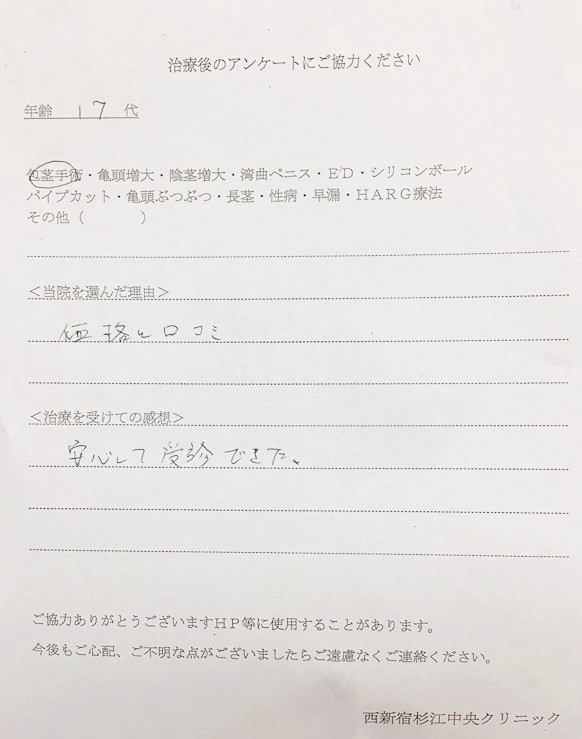 治療後のアンケートにご協力ください
年齢 17 代
包茎手術・亀頭増大・陰茎増大・湾曲ペニス・ED・シリコンボール
パイプカット・亀頭ぶつぶつ・長茎・性病・早漏・HARG療法
その他（ ）
＜当院を選んだ理由＞
価格と口コミ
＜治療を受けての感想＞
安心して受診できた。
ご協力ありがとうございますHP等に使用することがあります。
今後もご心配、ご不明な点がございましたらご遠慮なくご連絡ください。
西新宿杉江中央クリニック